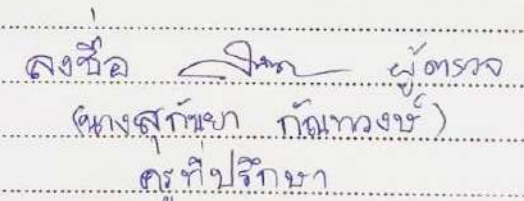 ลงชื่อ ผู้ตรวจ
(นางสุกัญยา กัณฑวงษ์)
ครูที่ปรึกษา